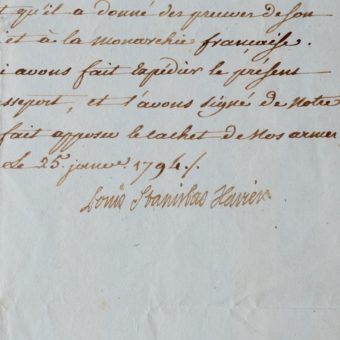 t qu'il a donné des preuves de son
et à la monarchie française.
i avons fait Expédier le présent
sseport, et l'avons signé de Notre
fait apposer le cachet de Nos armes
Le 25. janv.er 1794./.
Louis Stanislas Xavier